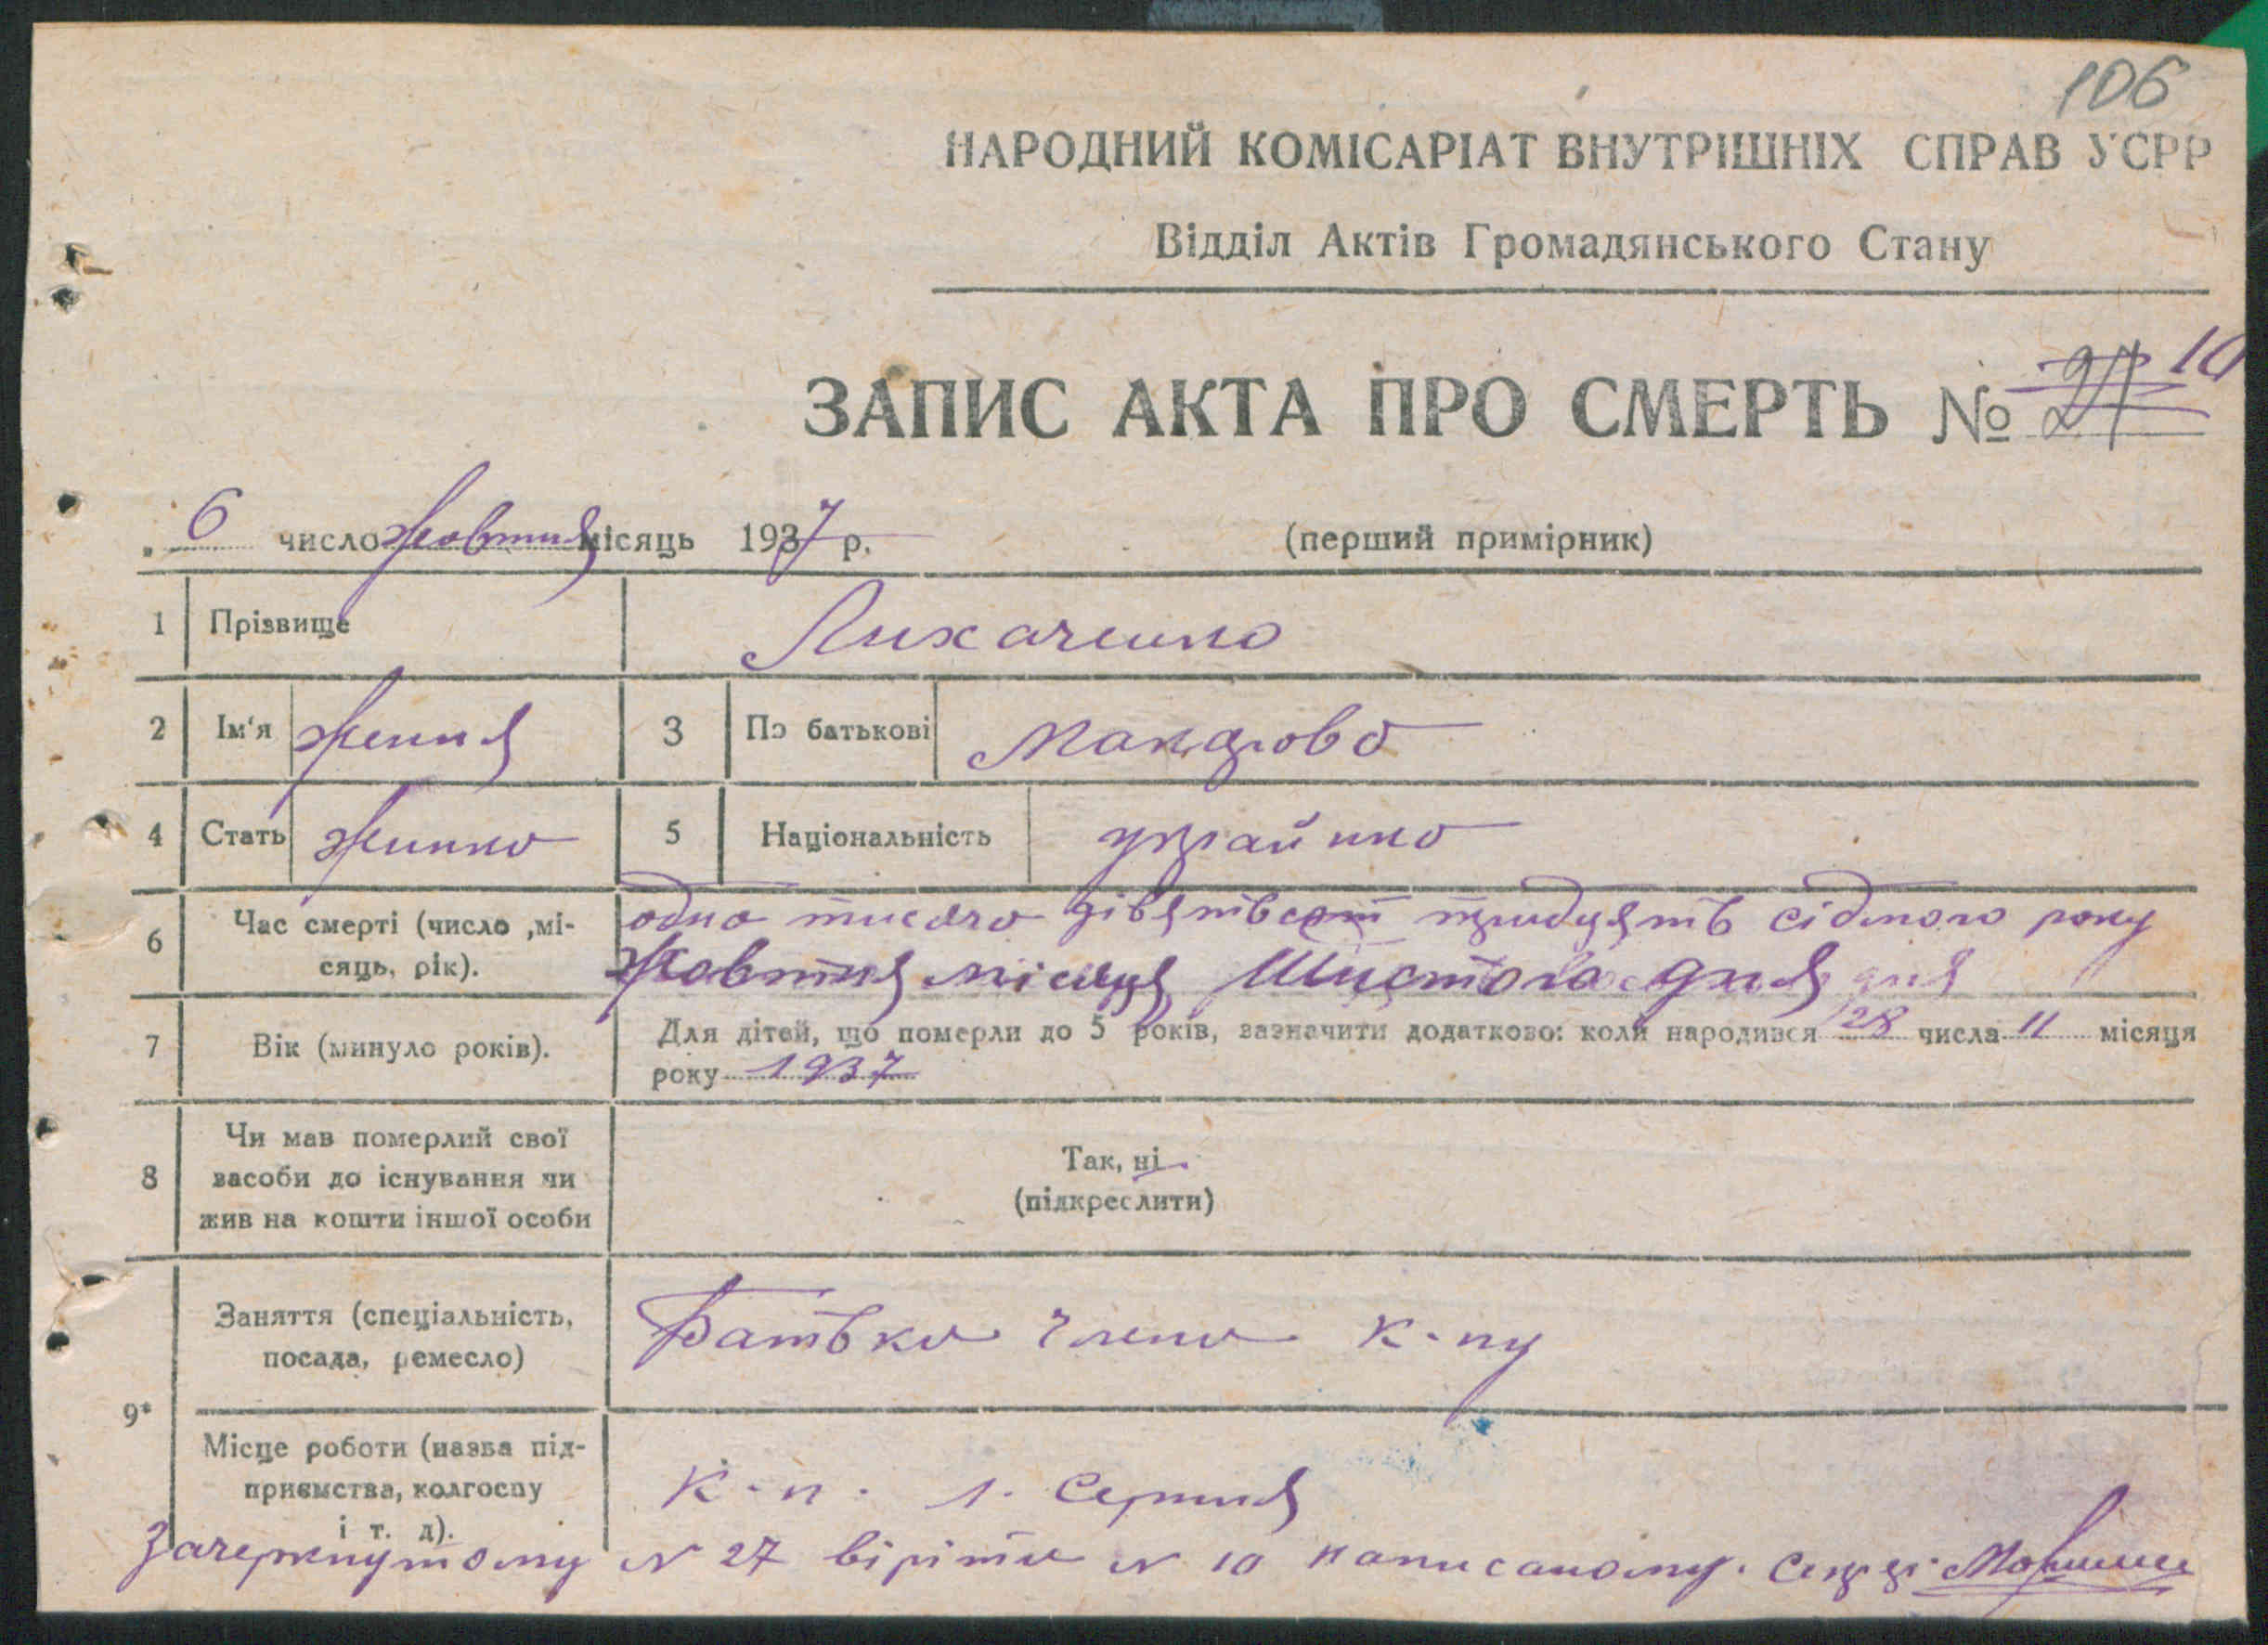 106
НАРОДНИЙ КОМІСАРІАТ ВНУТРІШНІХ СПРАВ УСРР
Відділ Актів Громадянського Стану
ЗАПИС АКТА ПРО СМЕРТЬ № 27 10
6 число жовтня місяць 1937 р. (перший примірник)
1 Прізвище Лихаченко
2 Ім'я Ження 3 По батькові
4 Стать жинка 5 Національність украйнка
6 Час смерті (число, мі- одна тисяча дівятьсот тридцять сідмого року
сяць, рік). Жовтня місяця Шистого дня дня
7 Вік (минуло років). Для дітей, що померли до 5 років, зазначити додатково: коли народився 28 числа 11 місяця
року 1937
8 Чи мав померлий свої
засоби до існування чи
жив на кошти іншої особи
Так, ні
(підкреслити)
9*
Заняття (спеціальність,
посада, ремесло)
Батько члена к-пу
Місце роботи (назва під-
приємства, колгоспу
і т. д).
К-п. 1. Серпня
Зачеркнутому № 27 віріти № 10 написаному.